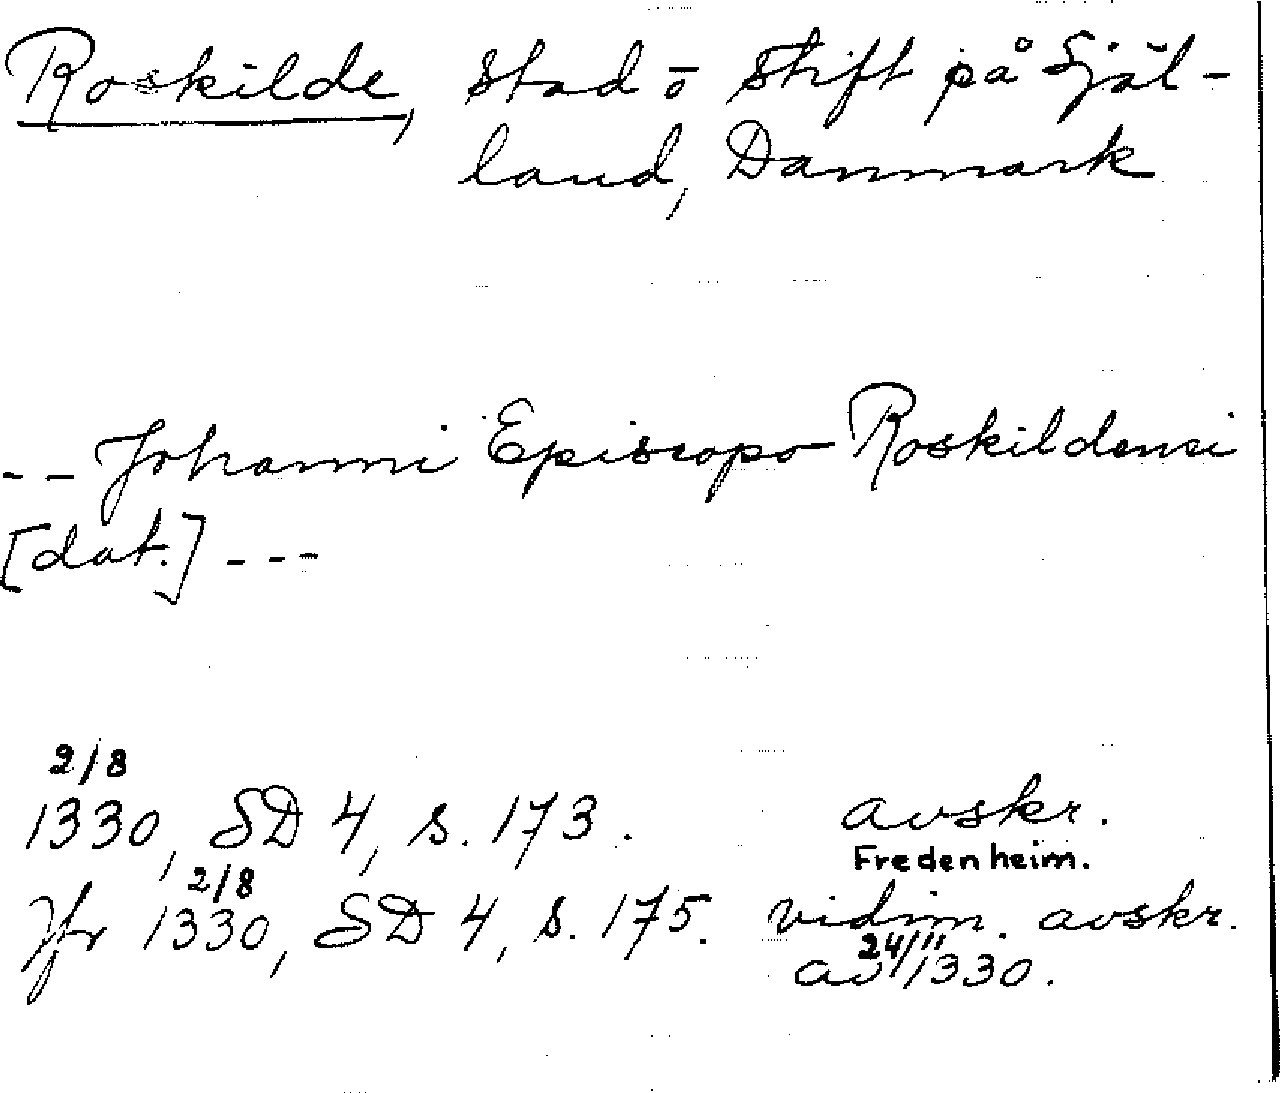 Roskilde, stad o stift på Själ-
land, Danmark
-- Johanni Episcopo Roskildensi
[dat.] ---
2/8
1330, SD 4, s. 173. avskr.
Fredenheim.
2/8
Jfr 1330, SD 4, s. 175. vidim. avskr.
24/11
av 1330.